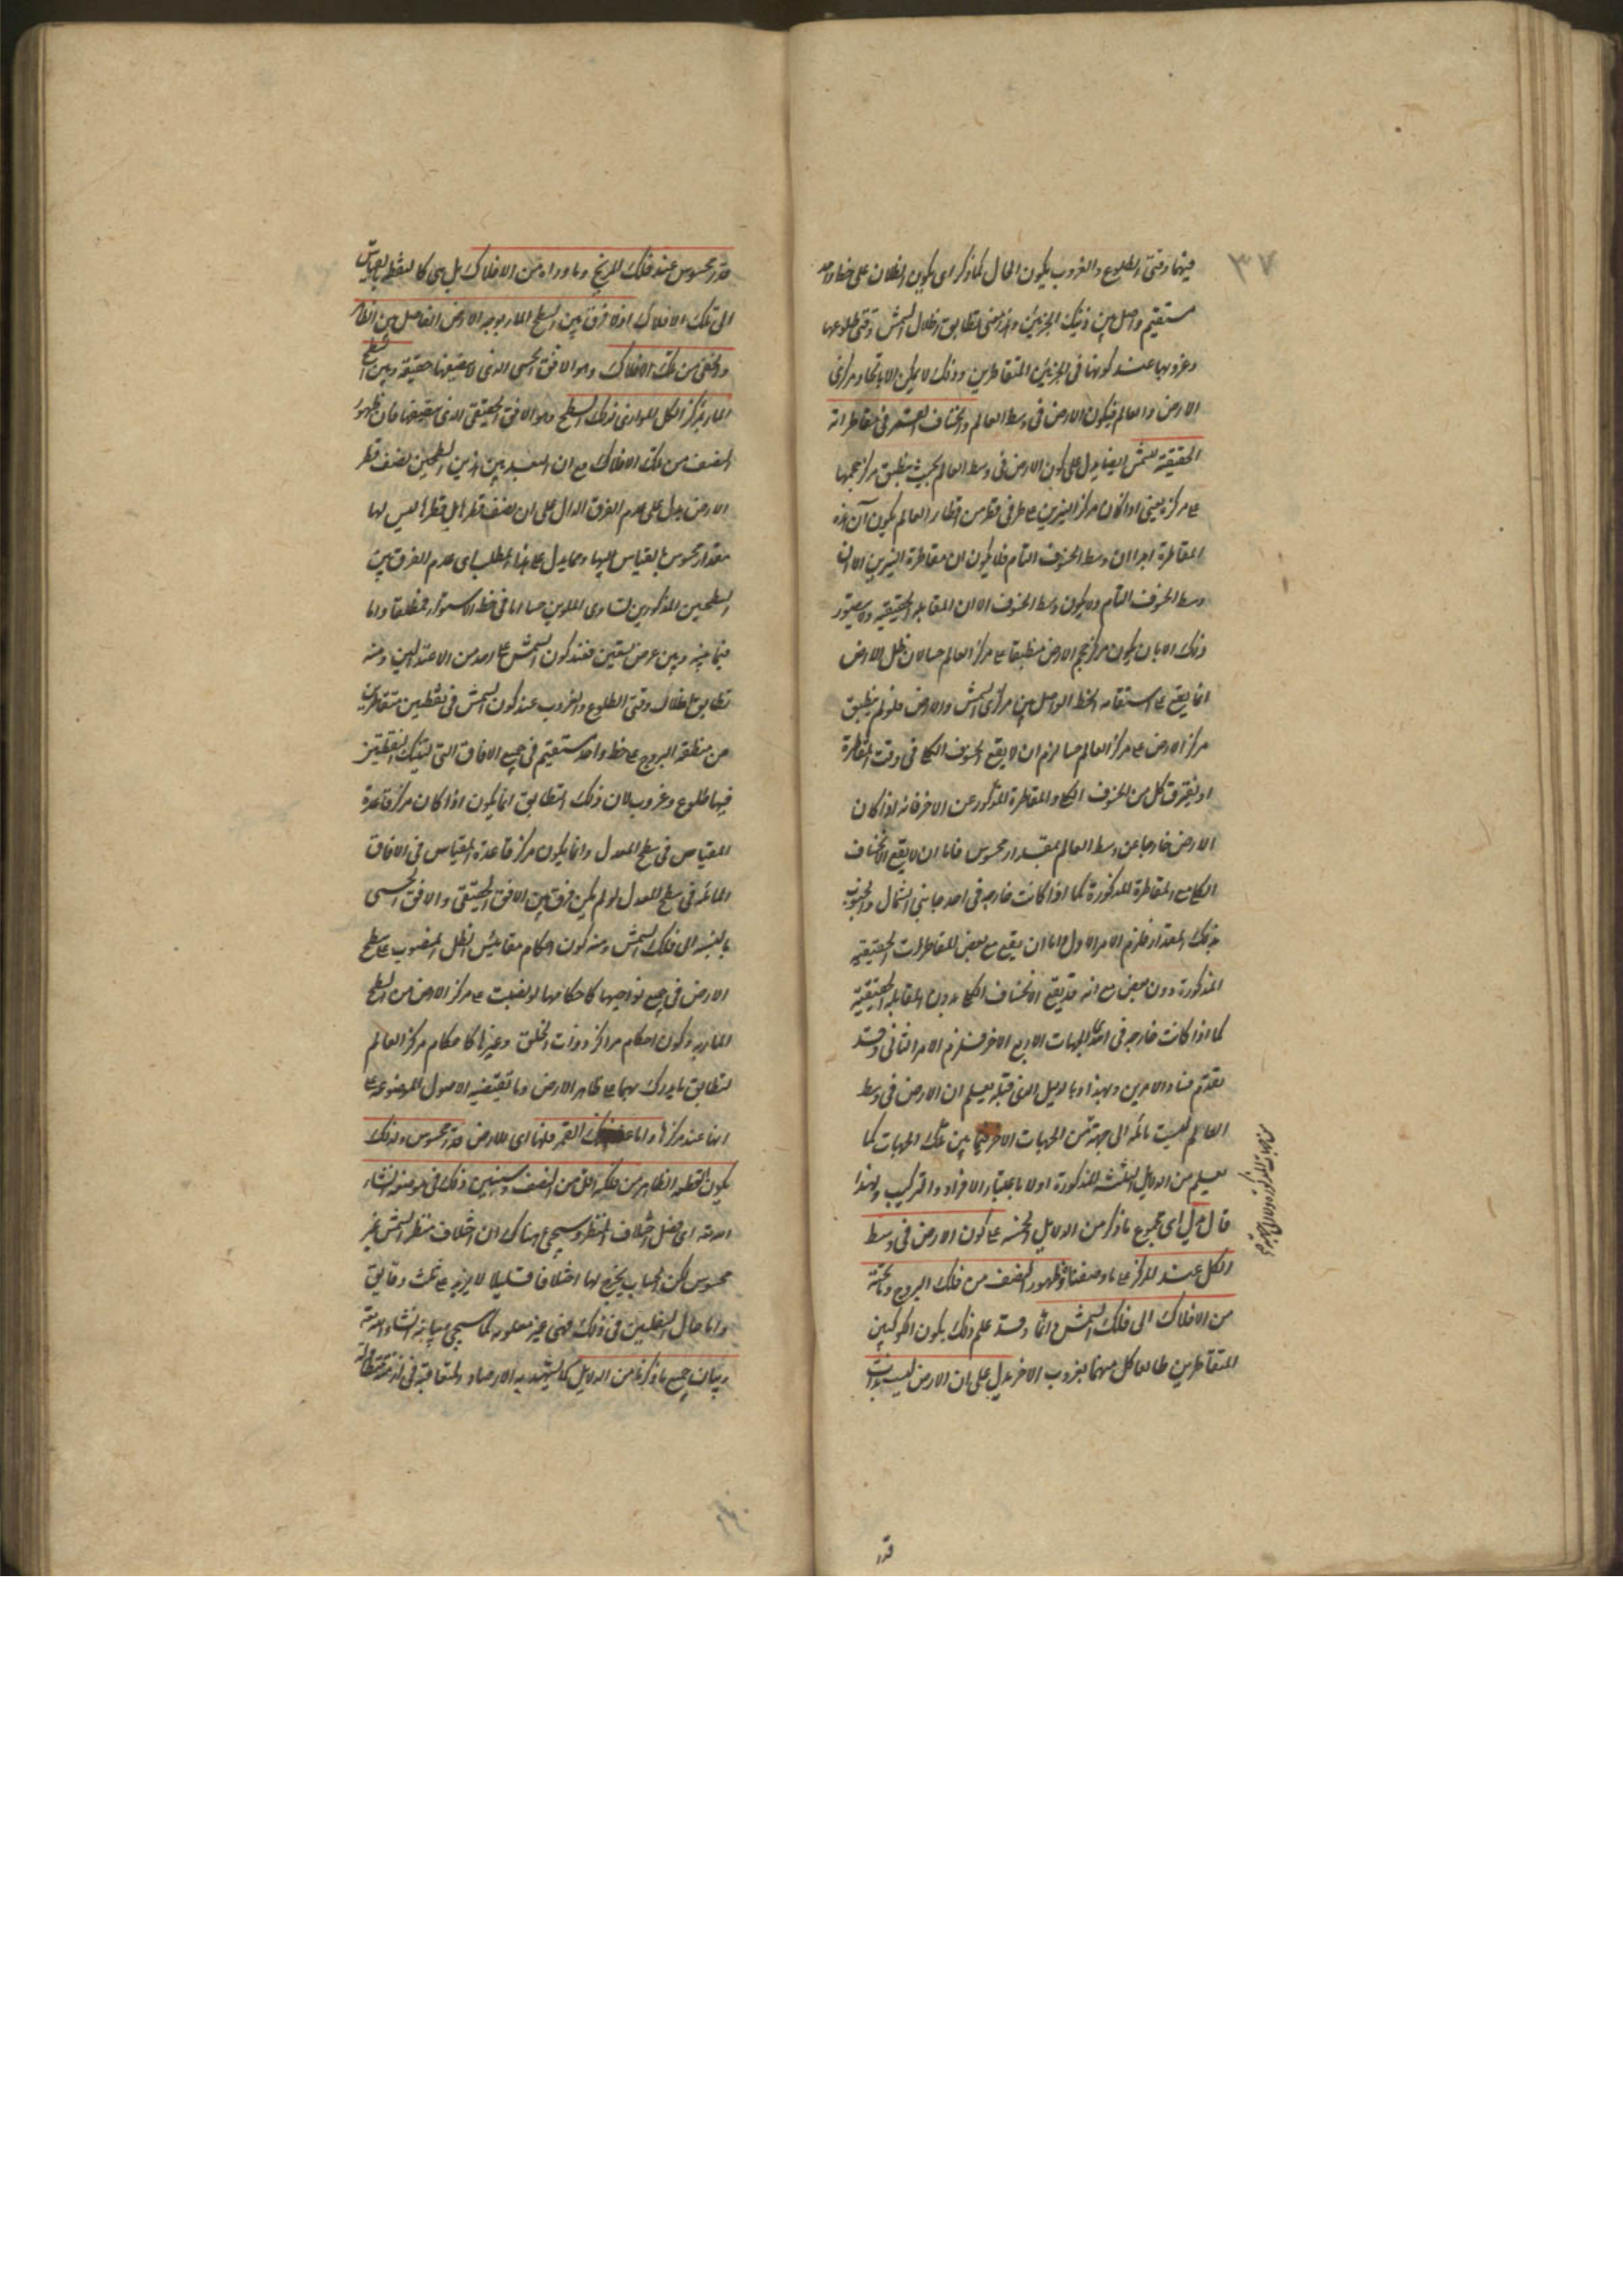 ٣٧
فيهما وقتى الطلوع والغروب يكون الحال كما ذكر اى يكون الظلان على خط واحد
مستقيم واصل بين ذينك الجزئين وهذا معنى تطابق اظلال الشمس وقتى طلوعها
وغروبها عند كونها فى الجزئين المتقاطرين وذلك لا يمكن الا باتحاد مركزى
الارض والعالم فيكون الارض فى وسط العالم وانخساف القمر فى مقاطراته
الحقيقية للشمس ايضا يدل على كون الارض فى وسط العالم بحيث ينطبق مركز حجمها
على مركزه يعنى اذا كان مركز النيرين على طرفى قطر من اقطار العالم يكون آن هذه
المقاطرة احد آن وسط الخسوف التام فلا يكون ان مقاطرة النيرين الا ان
وسط الخسوف التام ولا يكون وسط الخسوف الا ان المقابلة الحقيقية ولا يتصور
ذلك الا بان يكون مركز حجم الارض منطبقا على مركز العالم حسا لان ظل الارض
انما يقع على استقامة الخط الواصل بين مركزى الشمس والارض فلو لم ينطبق
مركز الارض على مركز العالم حسا لزم ان لا يقع الخسوف الكلى فى وقت المقاطرة
او يفترق كل من الخسوف الكلى والمقاطرة المذكور عن الاخر فانه اذا كان
الارض خارجا عن وسط العالم بمقدار محسوس فاما ان لا يقع الانخساف
الكلى مع المقاطرة المذكورة كما اذا كانت خارجه فى احد جانبى الشمال والجنوب
بذلك المقدار فلزم الامر الاول واما ان يقع مع بعض المقاطرات الحقيقية
المذكورة دون بعض مع انه قد يقع الانخساف الكلى بدون المقابلة الحقيقية
كما اذا كانت خارجه فى احدى الجهات الاربع الاخر فلزم الامر الثانى وقد
تقدم فساد الامرين وبهذا وبالدليل الذى قبله يعلم ان الارض فى وسط
العالم ليست مائلة الى جهة من الجهات الاخر فيما بين تلك الجهات كما
يعلم من الدلايل الثلثة المذكورة اولا باعتبار الافراد والتركيب ولهذا
قال دل اى مجموع ما ذكر من الدلايل الخمسه على كون الارض فى وسط
الكل عند المركز على ما وصفناه وظهور النصف من فلك البروج وما تحته
من الافلاك الى فلك الشمس دائما وقد علم ذلك بكون الكوكبين
المتقاطرين طالعا كل منهما بغروب الاخر يدل على ان الارض ليست بذات
قدر
قدر محسوس عند فلك المريخ وما وراه من الافلاك بل هى كالنقطة بالقياس
الى تلك الافلاك اذ لا فرق بين السطح المار بوجه الارض الفاصل بين الظاهر
والخفى من تلك الافلاك وهو الافق الحسى الذى لا ينصفها حقيقة وبين السطح
المار بمركز الكل الموازى لذلك السطح وهو الافق الحقيقى الذى ينصفها فان ظهور
النصف من تلك الافلاك مع ان البعد بين هذين السطحين نصف قطر
الارض يدل على عدم الفرق الدال على ان نصف قطرها بل قطرها ليس لها
مقدار محسوس بالقياس اليها ومما يدل على هذا المطلب اى عدم الفرق بين
السطحين المذكورين تساوى الملوين حسا اما فى خط الاستواء فمطلقا واما
فيما بينه وبين عرض تسعين فعند كون الشمس على احد من الاعتدالين ومنه
تطابق اظلال وقتى الطلوع والغروب عند كون الشمس فى نقطتين متقاطرتين
من منطقة البروج على خط واحد مستقيم فى جميع الافاق التى لتينك النقطتين
فيها طلوع وغروب لان ذلك التطابق انما يكون اذا كان مركز قاعدة
المقياس فى سطح المعدل وانما يكون مركز قاعدة المقياس فى الافاق
المائله فى سطح المعدل لو لم يكن فرق بين الافق الحقيقى والافق الحسى
بالنسبة الى فلك الشمس ومنه كون احكام مقاييس الظل المنصوب على سطح
الارض فى جميع نواحيها كاحكامها لو نصبت على مركز الارض من السطح
المار به وكون احكام مراكز ذوات الحلق وغيرها كاحكام مركز العالم
لتطابق ما يدرك بهما على ظاهر الارض وما تقتضيه الاصول الموضوعه على
انها عند مركزها واما عند فلك القمر فلها اى للارض قدر محسوس ولذلك
يكون القطعة الظاهره من فلكه اقل من النصف وسنبين ذلك فى موضعه ان شاء
الله اى فصل اختلاف المنظر وسيجئ هناك ان اختلاف منظر الشمس غير
محسوس لكن الحساب يخرج لها اختلافا قليلا لا يزيد على ثلث دقايق
واما حال السفليين فى ذلك فهى غير معلومه كما سيجئ بيانه ان شاء الله
وبيان جميع ما ذكرناه من الدلايل كما يشهد به الارصاد المتعاقبة فى ازمنة متطاولة